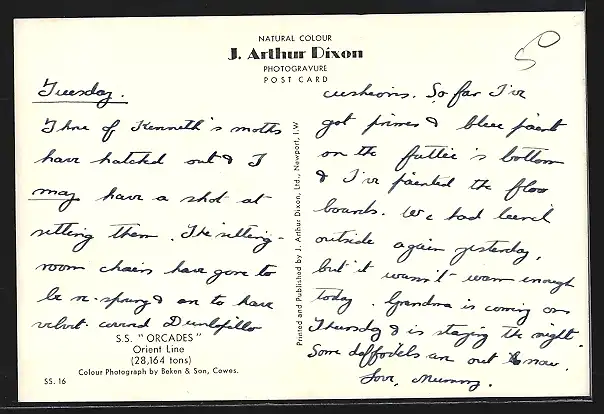 NATURAL COLOUR
J. Arthur Dixon
PHOTOGRAVURE
POST CARD
Tuesday.
Three of Kenneth's moths
have hatched out & I
may have a shot at
setting them. The sitting-
room chairs have gone to
be re-sprung & are to have
velvet-covered Dunlopillo
S.S. "ORCADES"
Orient Line
(28,164 tons)
Colour Photograph by Beken & Son, Cowes.
SS. 16
Printed and Published by J. Arthur Dixon, Ltd., Newport, I.W
cushions. So far I've
got primer & blue paint
on the bottom
& I've painted the floor
boards. We had lunch
outside again yesterday,
but it wasn't warm enough
today. Grandma is coming on
Thursday & is staying the night.
Some daffodils are out now.
Love, Mummy.